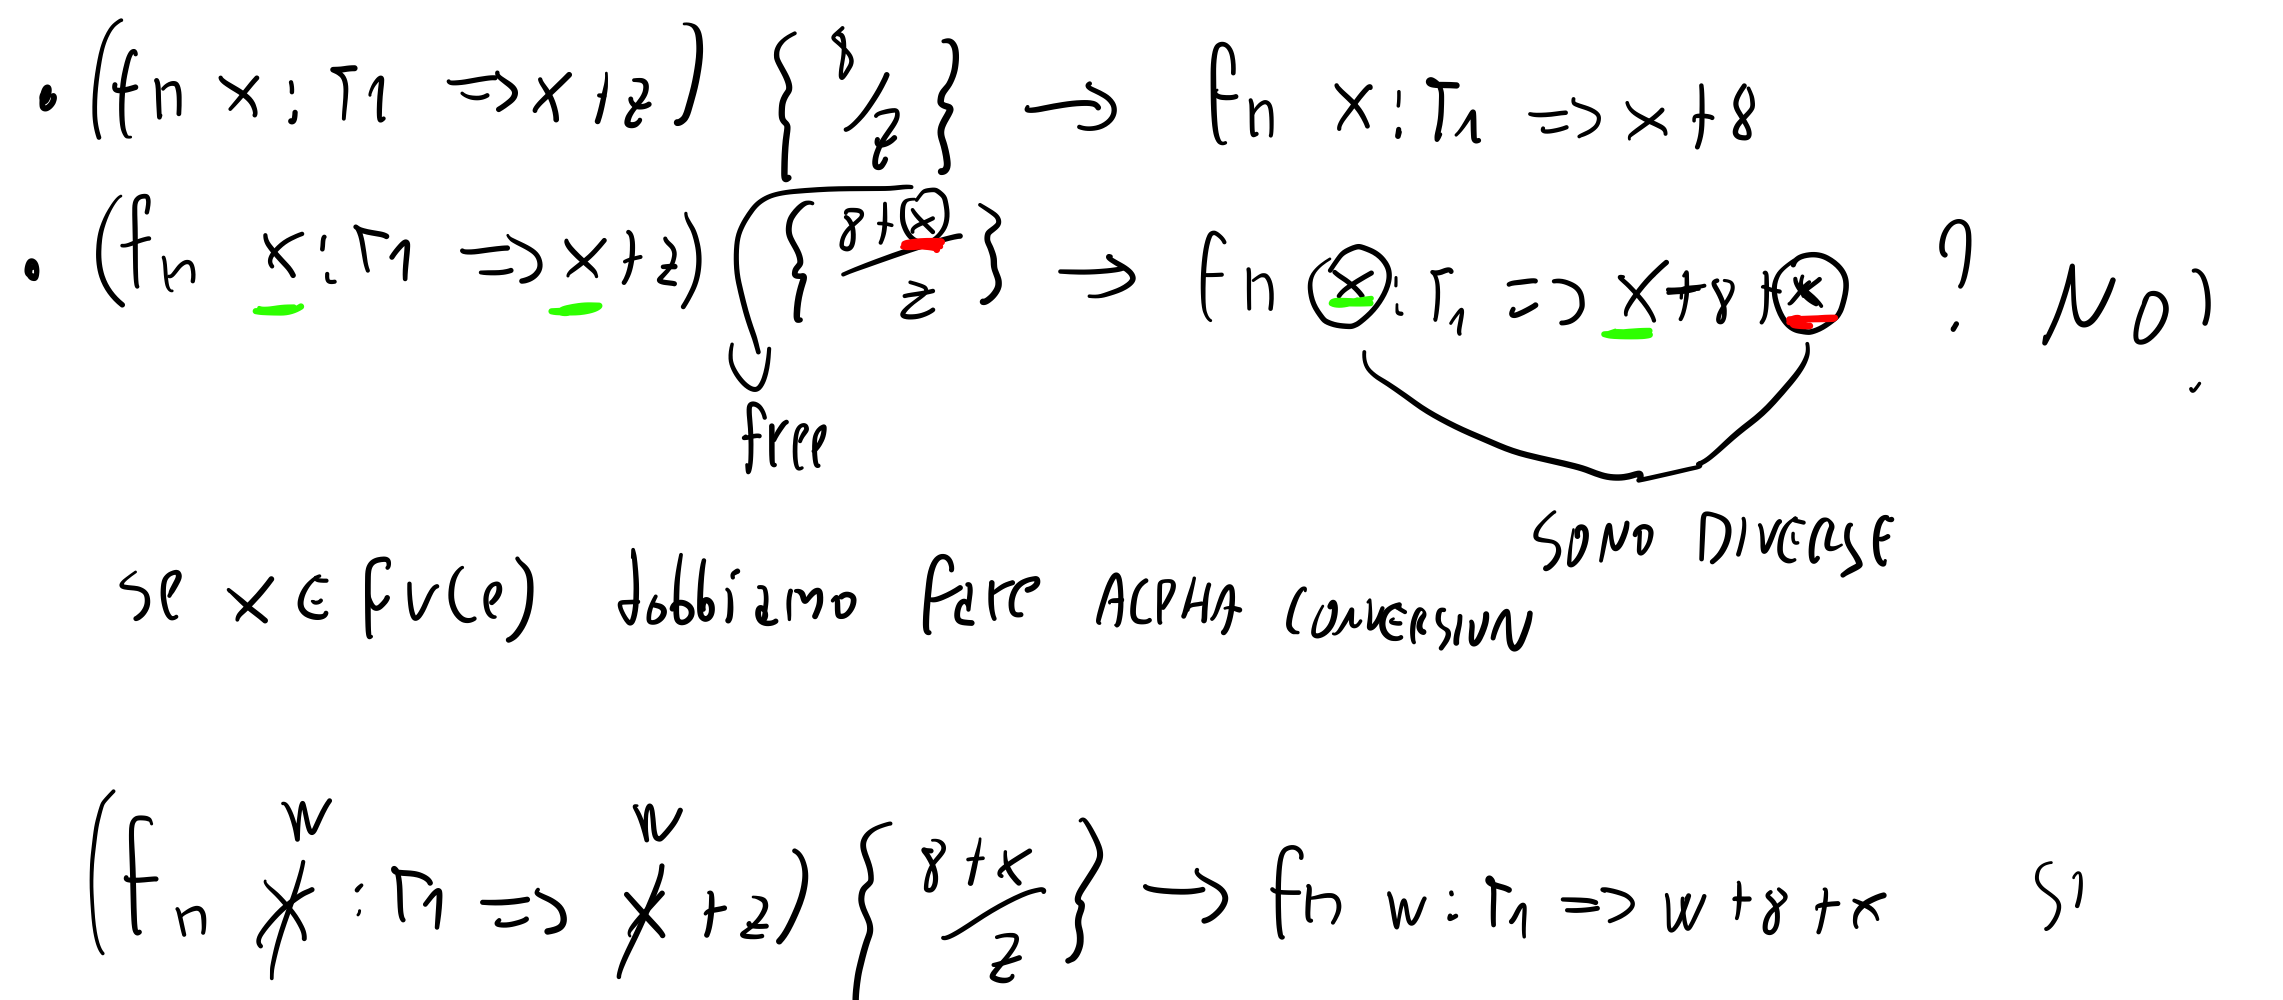 • (fn x : T1 => x + z) { 8 / z } → fn x : T1 => x + 8
• (fn x : T1 => x + z) { 8 + x / z } → fn x : T1 => x + 8 + x ? NO!
free
SONO DIVERSE
se x ∈ fv(e) dobbiamo fare ALPHA CONVERSION
w w
(fn x : T1 => x + z) { 8 + x / z } → fn w : T1 => w + 8 + x SI